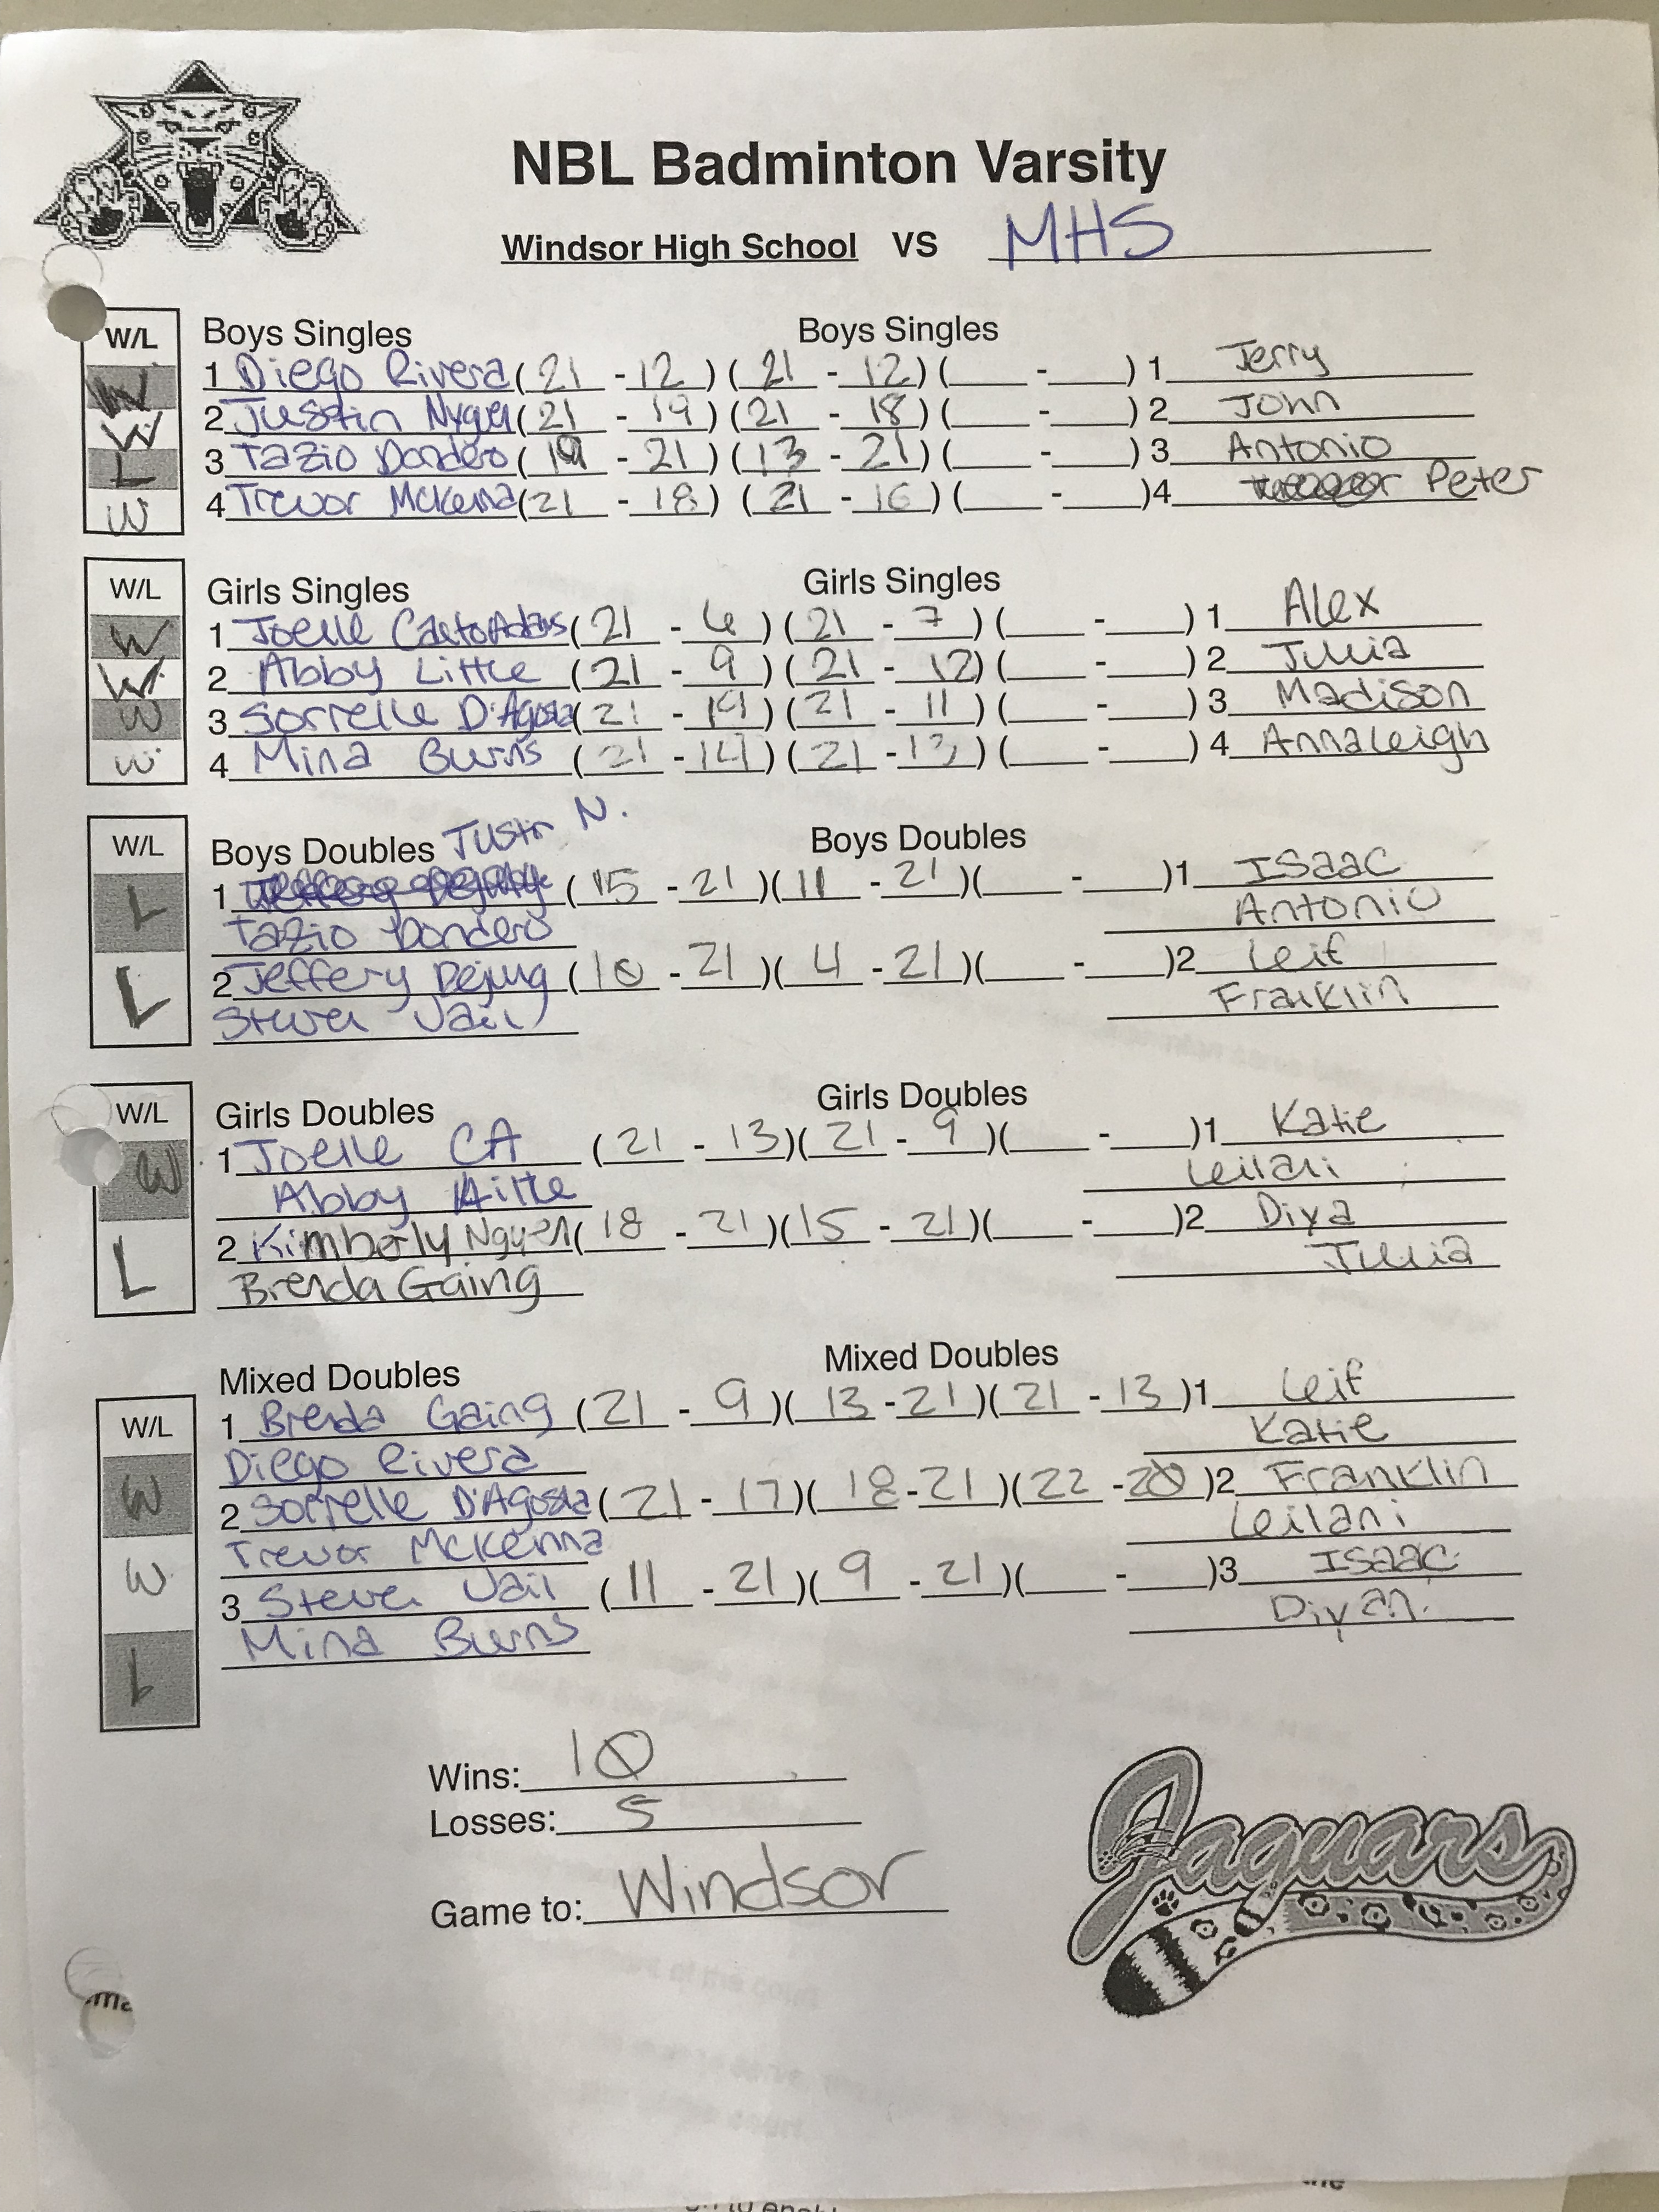 NBL Badminton Varsity
Windsor High School VS MHS
W/L Boys Singles Boys Singles
W 1 Diego Rivera (21 - 12) (21 - 12) ( - ) 1 Jerry
W 2 Justin (21 - 19) (21 - 18) ( - ) 2 John
L 3 Tazio Dondero (19 - 21) (13 - 21) ( - ) 3 Antonio
W 4 Trevor McKenna (21 - 18) (21 - 16) ( - ) 4 Peter
W/L Girls Singles Girls Singles
W 1 Joelle (21 - 6) (21 - 7) ( - ) 1 Alex
W 2 Abby Little (21 - 9) (21 - 12) ( - ) 2 Julia
W 3 Sorrelle D'Agosta (21 - 19) (21 - 11) ( - ) 3 Madison
W 4 Mina Burns (21 - 14) (21 - 13) ( - ) 4 Annaleigh
W/L Boys Doubles Justin N. Boys Doubles
L 1 (15 - 21) (11 - 21) ( - ) 1 Isaac
Tazio Dondero Antonio
L 2 Jeffery (10 - 21) (4 - 21) ( - ) 2 Leif
Steven Vail Franklin
W/L Girls Doubles Girls Doubles
W 1 Joelle CA (21 - 13) (21 - 9) ( - ) 1 Katie
Abby Leilani
L 2 Kimberly Nguyen (18 - 21) (15 - 21) ( - ) 2 Diya
Brenda Gaing Julia
Mixed Doubles Mixed Doubles
W/L 1 Brenda Gaing (21 - 9) (13 - 21) (21 - 13) 1 Leif
Diego Rivera Katie
W 2 Sorrelle D'Agosta (21 - 17) (18 - 21) (22 - 20) 2 Franklin
Trevor McKenna Leilani
W 3 Steven Vail (11 - 21) (9 - 21) ( - ) 3 Isaac
Mina Burns
L
Wins: 10
Losses: 5
Game to: Windsor
Jaguars